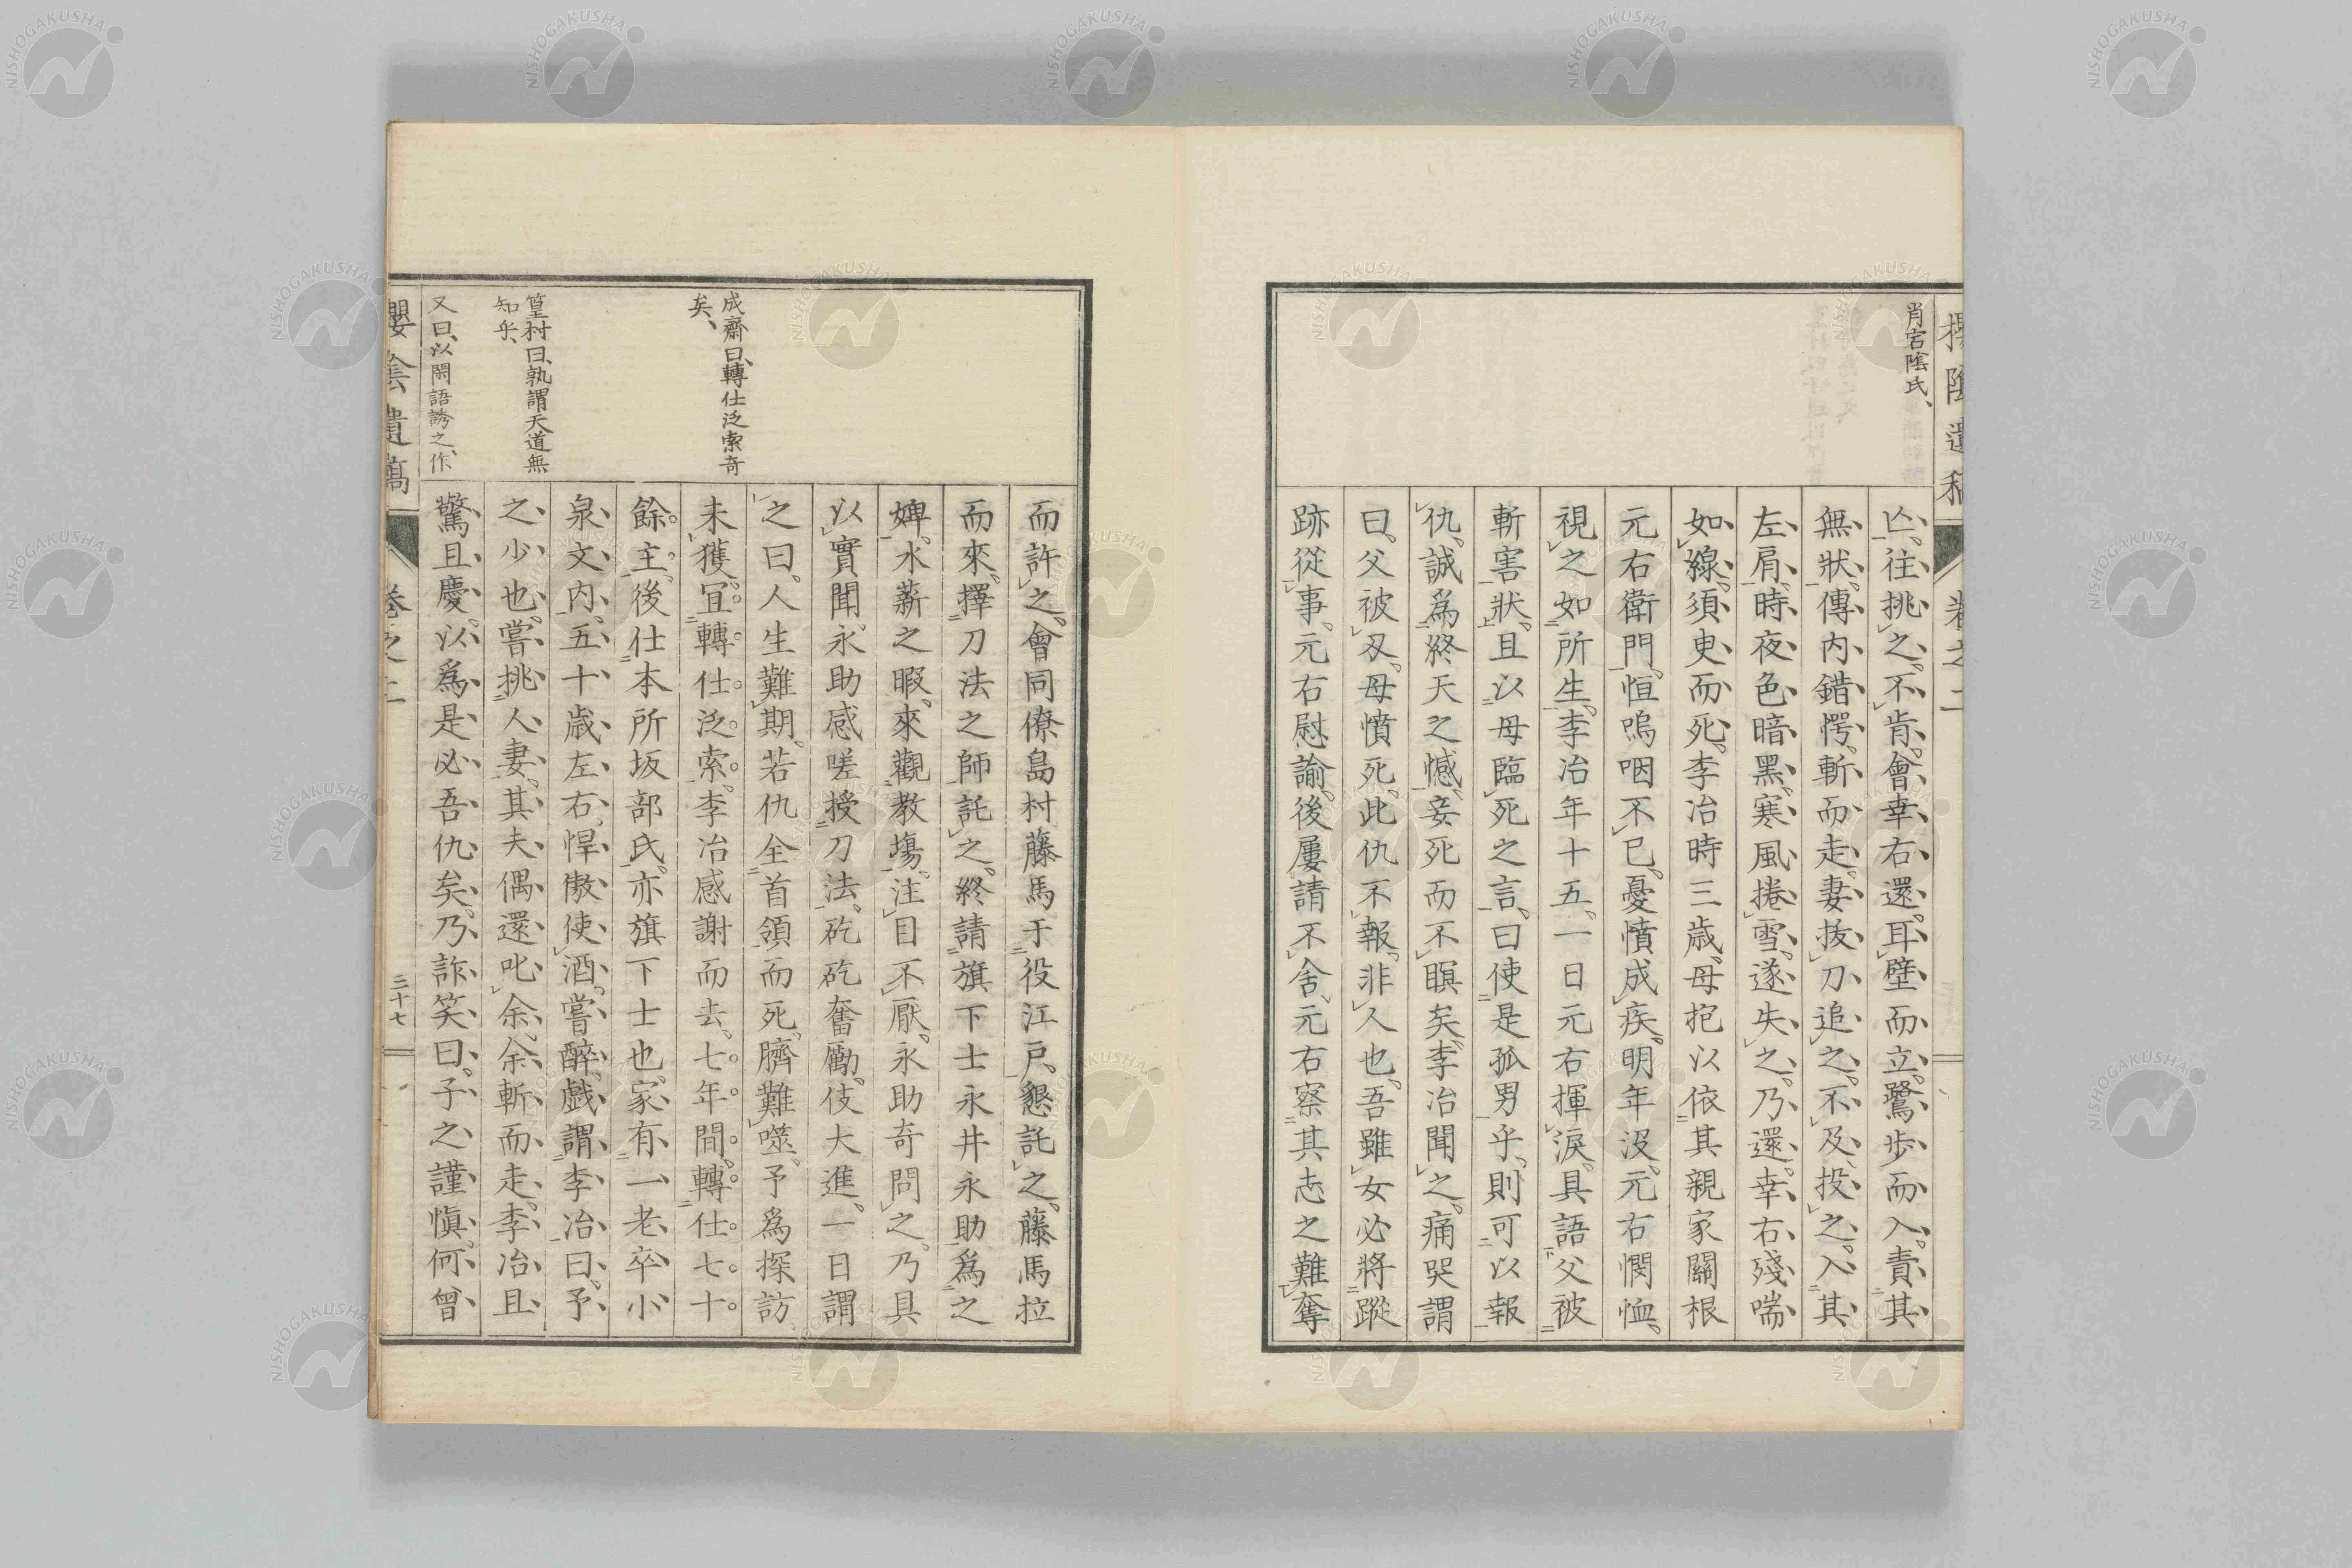 肖宕陰氏、
亾、往挑之。不肯。會幸右還。耳壁而立。鷺步而入。責其
無狀。傳內錯愕。斬而走。妻拔刀追之。不及。投之。入其
左肩。時夜色暗黑。寒風捲雪。遂失之。乃還。幸右殘喘
如線。須臾而死。李冶時三歲。母抱以依其親家關根
元右衛門。恒嗚咽不已。憂憤成疾。明年沒。元右憫恤、
視之如所生。李冶年十五。一日元右揮淚。具語父被
斬害狀。且以母臨死之言。曰使是孤男乎。則可以報
仇。誠爲終天之憾。妾死而不瞑矣。李冶聞之。痛哭謂
曰。父被刄。母憤死。此仇不報。非人也。吾雖女必將蹤
跡從事。元右慰諭。後屢請不舍。元右察其志之難奪
而許之。會同僚島村藤馬于役江戶。懇託之。藤馬拉
而來。擇刀法之師託之。終請旗下士永井永助爲之
婢。水薪之暇。來觀教場。注目不厭。永助奇問之。乃具
以實聞。永助感嗟授刀法。矻矻奮勵。伎大進。一日謂
之曰。人生難期。若仇全首領而死。臍難噬。予爲探訪
未獲。宜轉仕泛索。李冶感謝而去。七年間。轉仕七十
餘主。後仕本所坂部氏。亦旗下士也。家有一老卒小
泉文內。五十歲左右。悍傲使酒。嘗醉戲謂李冶曰。予
之少也。嘗挑人妻。其夫偶還叱余。余斬而走。李冶且
驚且慶。以爲是必吾仇矣。乃詐笑曰。子之謹愼。何曾
成齋曰、轉仕泛索奇
矣、
篁村曰、孰謂天道無
知乎、
又曰、以閑語誘之、作
櫻陰遺稿
卷之二
三十七